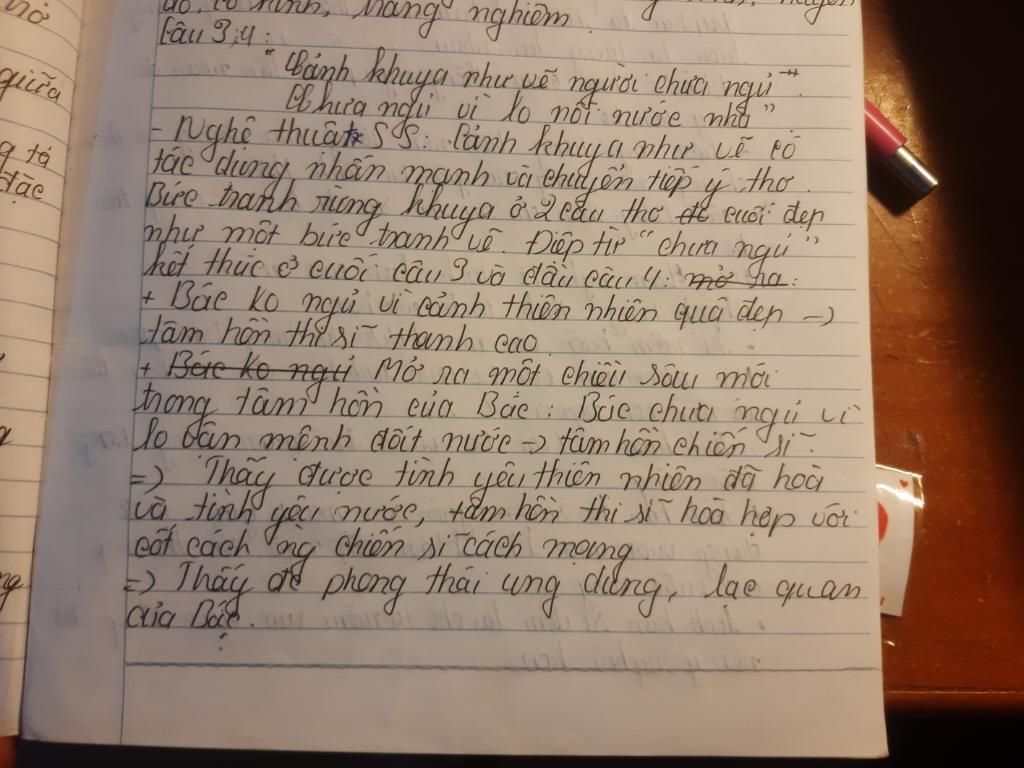 trang nghiêm
Câu 3,4:
"Cảnh khuya như vẽ người chưa ngủ".
Chưa ngủ vì lo nỗi nước nhà"
- Nghệ thuật SS: Cảnh khuya như vẽ có
tác dụng nhấn mạnh và chuyển tiếp ý thơ.
Bức tranh rừng khuya ở 2 câu thơ cuối đẹp
như một bức tranh vẽ. Điệp từ "chưa ngủ"
kết thúc ở cuối câu 3 và đầu câu 4: mở ra:
+ Bác ko ngủ vì cảnh thiên nhiên quá đẹp ->
tâm hồn thi sĩ thanh cao.
+ Bác ko ngủ Mở ra một chiều sâu mới
trong tâm hồn của Bác: Bác chưa ngủ vì
lo vận mệnh đất nước -> tâm hồn chiến sĩ.
=> Thấy được tình yêu thiên nhiên đã hoà
và tình yêu nước, tâm hồn thi sĩ hoà hợp với
cốt cách chiến sĩ cách mạng
=> Thấy đc phong thái ung dung, lạc quan
của Bác.
giữa
g tả
đặc